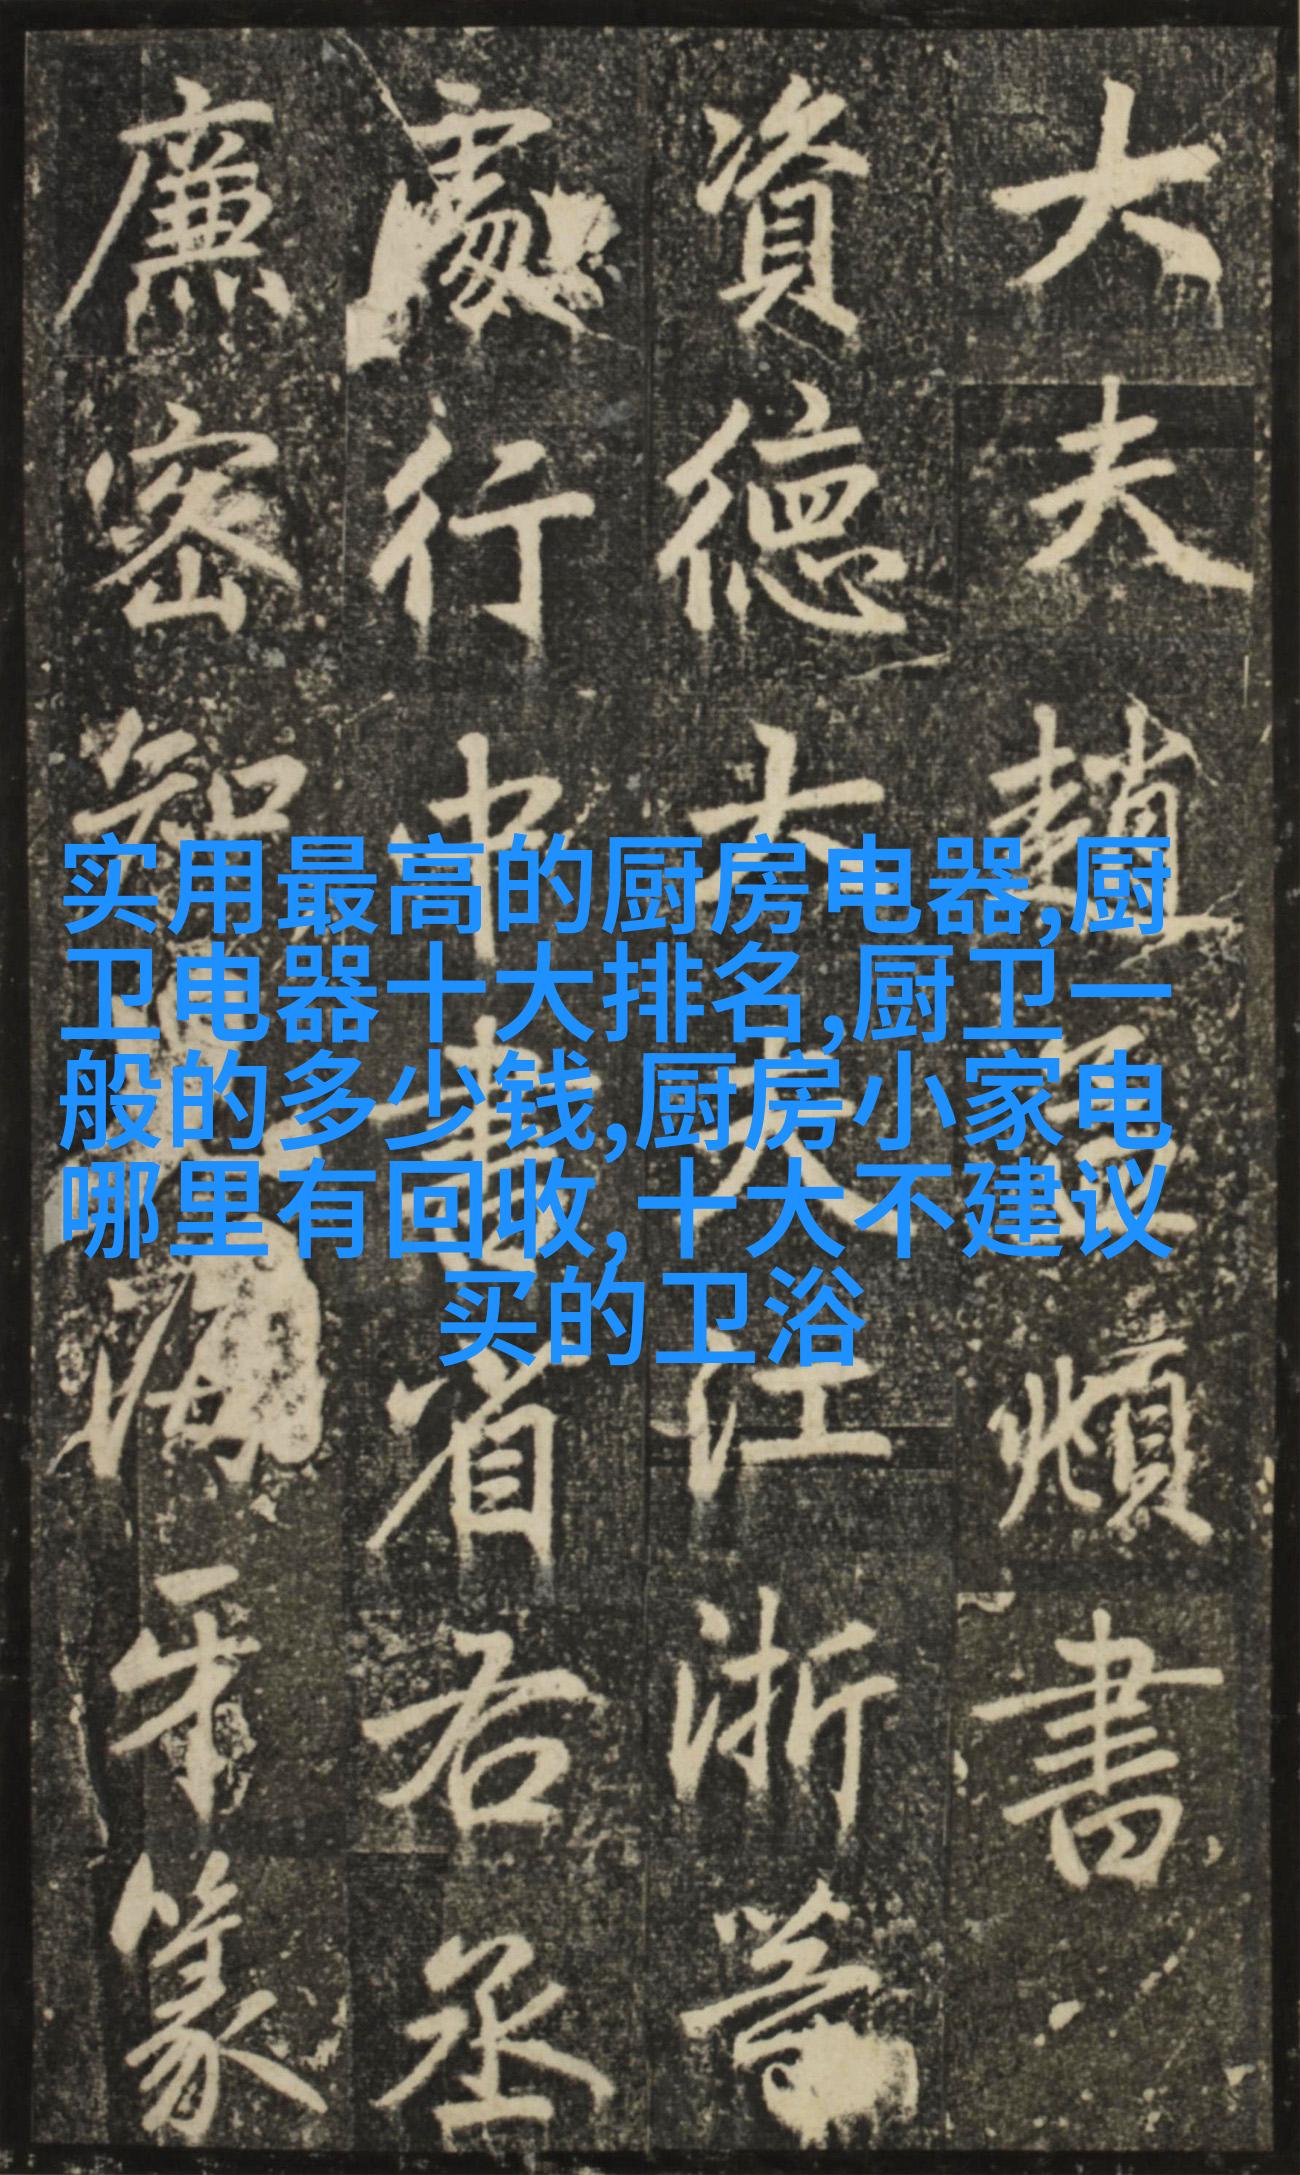 大夫趙孟頫書
資德大夫江浙等
處行中書省右丞
廉密知海牙篆
实用最高的厨房电器,厨
卫电器十大排名,厨卫一
般的多少钱,厨房小家电
哪里有回收,十大不建议
买的卫浴